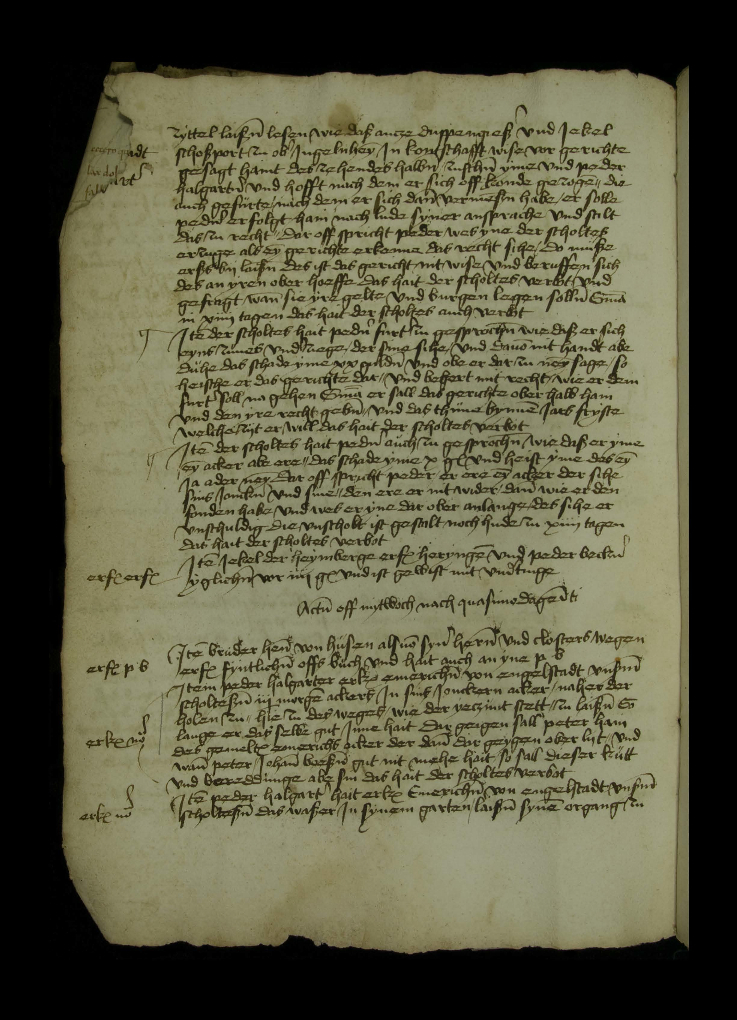 zyttel laißen lesen wie daß ancze Duppengießer und Jekel
schoßport zu ob Ingelnheym In kontschafft wise vor gerichte
gesagt haint des zehendes halbn zuschn yme und peder
halgarten und hofft nach dem er sich off konde gezogen die
auch gefurte nach dem er sich dan vermessen habe er solle
pedn erfolgt han nach lude syner ansprache und stilt
das zu recht dar off spricht peder wes yne der scholteß
erzuge als ey gerichte erkenne das recht sihe do muße
erß by laißn des ist das gericht nit wise und beruffen sich
des an yren ober hoeffe das hait der scholtes verbot und
gefragt wan sie yre gelte und burgen legen solln Sma
in xiiii tagen das hait der scholtes auch verbot
Ite der scholtes hait pedn furt zu gesprochn wie daß er sich
eyns zunes und zuege der sine sihe und davo nit handt abe
duhe das schade yme xx guldn und obe er dar zu ney sage so
heische er das gerichte dar und bessert mit recht wie er dem
furt soll na gehen Sma er sall das gerichte ober halb han
und den yre recht gebn und das thune bynne Jars fryste
welche zyt er will das hait der scholtes verbot
Ite der scholtes hait pedn auch zu gesprochn wie daß er yme
ey acker abe ere das schade yme x gl und heist yme des ey
Ja ader ney dar off spricht peder er ere ey acker der sihe
sins Jonckn und sine den ere er nit wider dan wie er den
fonden habe und wes er yne dar ober anlange des sihe er
unschuldig die unscholt ist gestalt noch hude zu xiiii tagen
das hait der scholtes verbot
Ite Jekel der heymberge erfx herynge und peder becker
yglichn vor iiij gx und ist gewist mit undtinge
erfx erfx
Actu off mytwoch nach quasimodogeniti
Ite bruder hen von husen als vo syn hern und closters wegen
erfx fyntlichn offs buch und hait auch an yne p b
erfx p b
Item peder halgarter erkx emerichn von engelstadt unsern
scholteßn iij morge ackers In sins Jonckern acker naher der
holen zu hie zu des weges wie der verzimt stett zu laißn So
lange er das selbe gut Inne hait Dar geigen sall peter han
des gemelt emerichs acker der dan dar geygen ober lyt und
erkx
wan peter Johan gut nit mehe hait so sall dieser kutt
und bereddunge abe sin das hait der scholtes verbot
Ite peder halgart hait erkx Emerichn von engelstadt unsern
scholteßn das waßer In synem garten laißn syne organg zu
erkx